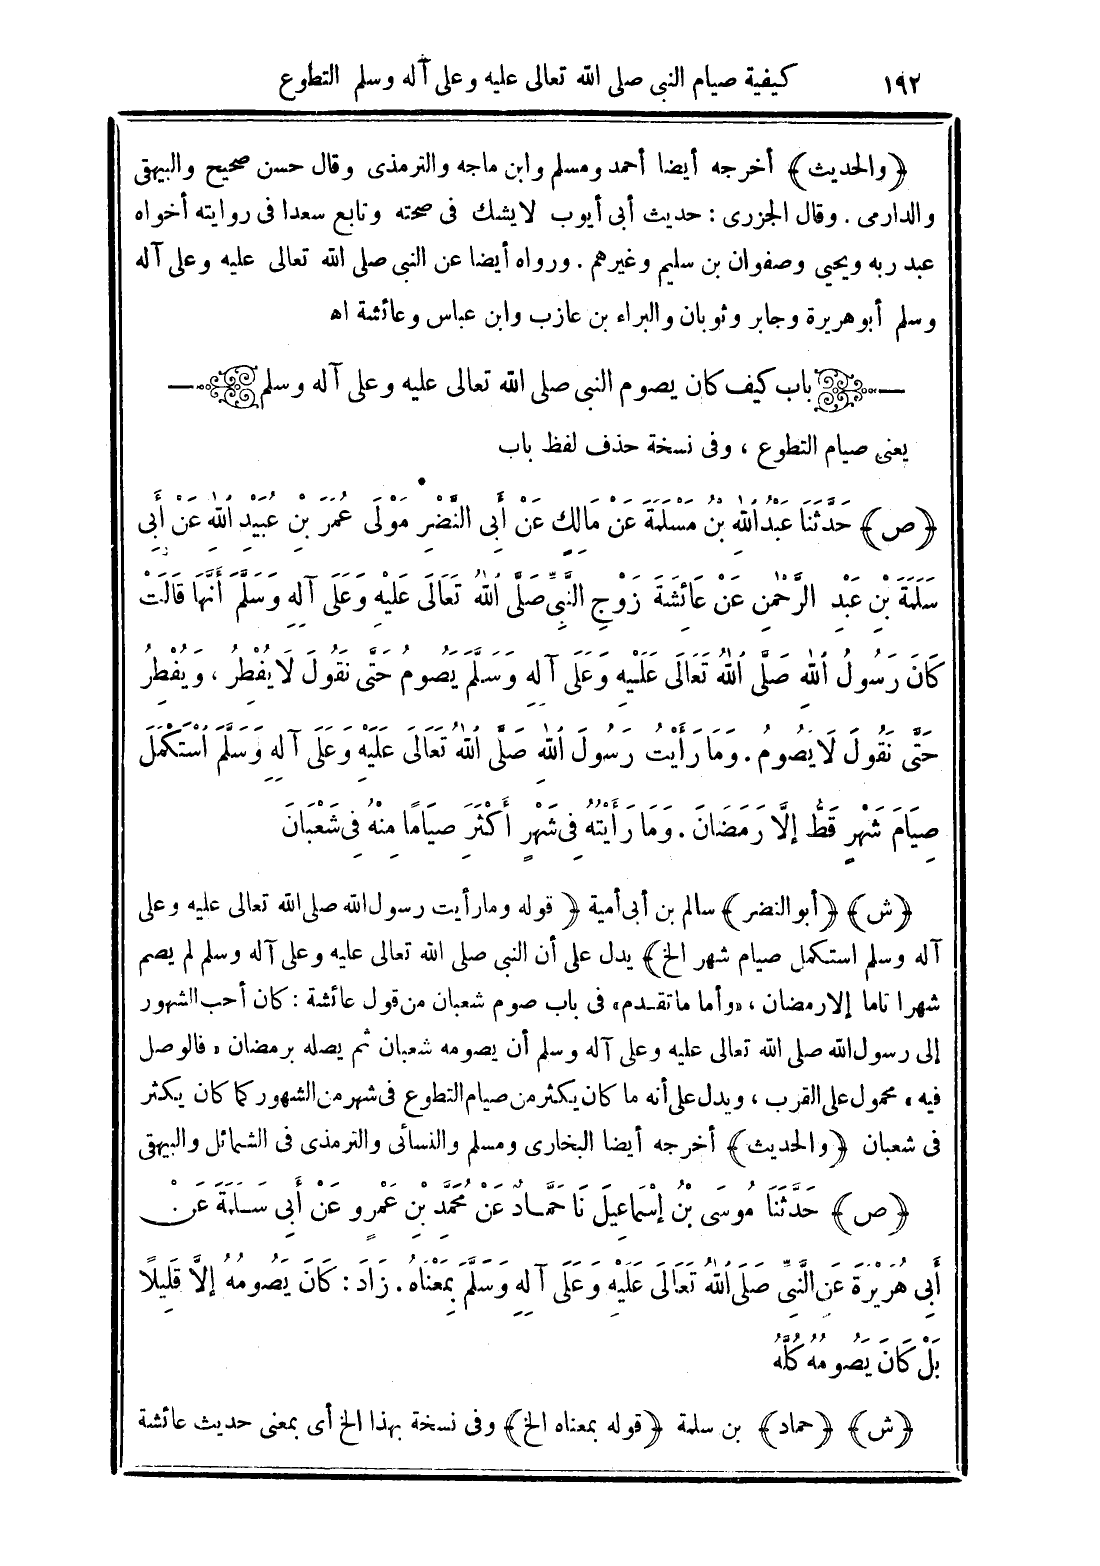 ١٩٢ كيفية صيام النبى صلى الله تعالى عليه وعلى آله وسلم التطوع
﴿والحديث﴾ أخرجه أيضا أحمد ومسلم وابن ماجه والترمذى وقال حسن صحيح والبيهقى
والدارمى . وقال الجزرى : حديث أبى أيوب لايشك فى صحته وتابع سعدا فى روايته أخواه
عبد ربه ويحيى وصفوان بن سليم وغيرهم . ورواه أيضا عن النبى صلى الله تعالى عليه وعلى آله
وسلم أبوهريرة وجابر وثوبان والبراء بن عازب وابن عباس وعائشة اه
باب كيف كان يصوم النبى صلى الله تعالى عليه وعلى آله وسلم
يعنى صيام التطوع ، وفى نسخة حذف لفظ باب
﴿ص﴾ حَدَّثَنَا عَبْدُ اللهِ بْنُ مَسْلَمَةَ عَنْ مَالِكٍ عَنْ أَبِى النَّضْرِ مَوْلَى عُمَرَ بْنِ عُبَيْدِ اللهِ عَنْ أَبِى
سَلَمَةَ بْنِ عَبْدِ الرَّحْمٰنِ عَنْ عَائِشَةَ زَوْجِ النَّبِىِّ صَلَّى اللهُ تَعَالَى عَلَيْهِ وَعَلَى آلِهِ وَسَلَّمَ أَنَّهَا قَالَتْ
كَانَ رَسُولُ اللهِ صَلَّى اللهُ تَعَالَى عَلَيْهِ وَعَلَى آلِهِ وَسَلَّمَ يَصُومُ حَتَّى نَقُولَ لَا يُفْطِرُ ، وَيُفْطِرُ
حَتَّى نَقُولَ لَا يَصُومُ . وَمَا رَأَيْتُ رَسُولَ اللهِ صَلَّى اللهُ تَعَالَى عَلَيْهِ وَعَلَى آلِهِ وَسَلَّمَ اسْتَكْمَلَ
صِيَامَ شَهْرٍ قَطُّ إِلَّا رَمَضَانَ . وَمَا رَأَيْتُهُ فِى شَهْرٍ أَكْثَرَ صِيَامًا مِنْهُ فِى شَعْبَانَ
﴿ش﴾ ﴿أبو النضر﴾ سالم بن أبى أمية ﴿قوله ومارأيت رسول الله صلى الله تعالى عليه وعلى
آله وسلم استكمل صيام شهر الخ﴾ يدل على أن النبى صلى الله تعالى عليه وعلى آله وسلم لم يصم
شهرا تاما إلارمضان ، «وأما ماتقدم» فى باب صوم شعبان من قول عائشة : كان أحب الشهور
إلى رسول الله صلى الله تعالى عليه وعلى آله وسلم أن يصومه شعبان ثم يصله برمضان « فالوصل
فيه » محمول على القرب ، ويدل على أنه ما كان يكثر من صيام التطوع فى شهر من الشهور كما كان يكثر
فى شعبان ﴿والحديث﴾ أخرجه أيضا البخارى ومسلم والنسائى والترمذى فى الشمائل والبيهقى
﴿ص﴾ حَدَّثَنَا مُوسَى بْنُ إِسْمَاعِيلَ نَا حَمَّادٌ عَنْ مُحَمَّدِ بْنِ عَمْرٍو عَنْ أَبِى سَلَمَةَ عَنْ
أَبِى هُرَيْرَةَ عَنِ النَّبِىِّ صَلَّى اللهُ تَعَالَى عَلَيْهِ وَعَلَى آلِهِ وَسَلَّمَ بِمَعْنَاهُ . زَادَ : كَانَ يَصُومُهُ إِلَّا قَلِيلًا
بَلْ كَانَ يَصُومُهُ كُلَّهُ
﴿ش﴾ ﴿حماد﴾ بن سلمة ﴿قوله بمعناه الخ﴾ وفى نسخة بهذا الخ أى بمعنى حديث عائشة